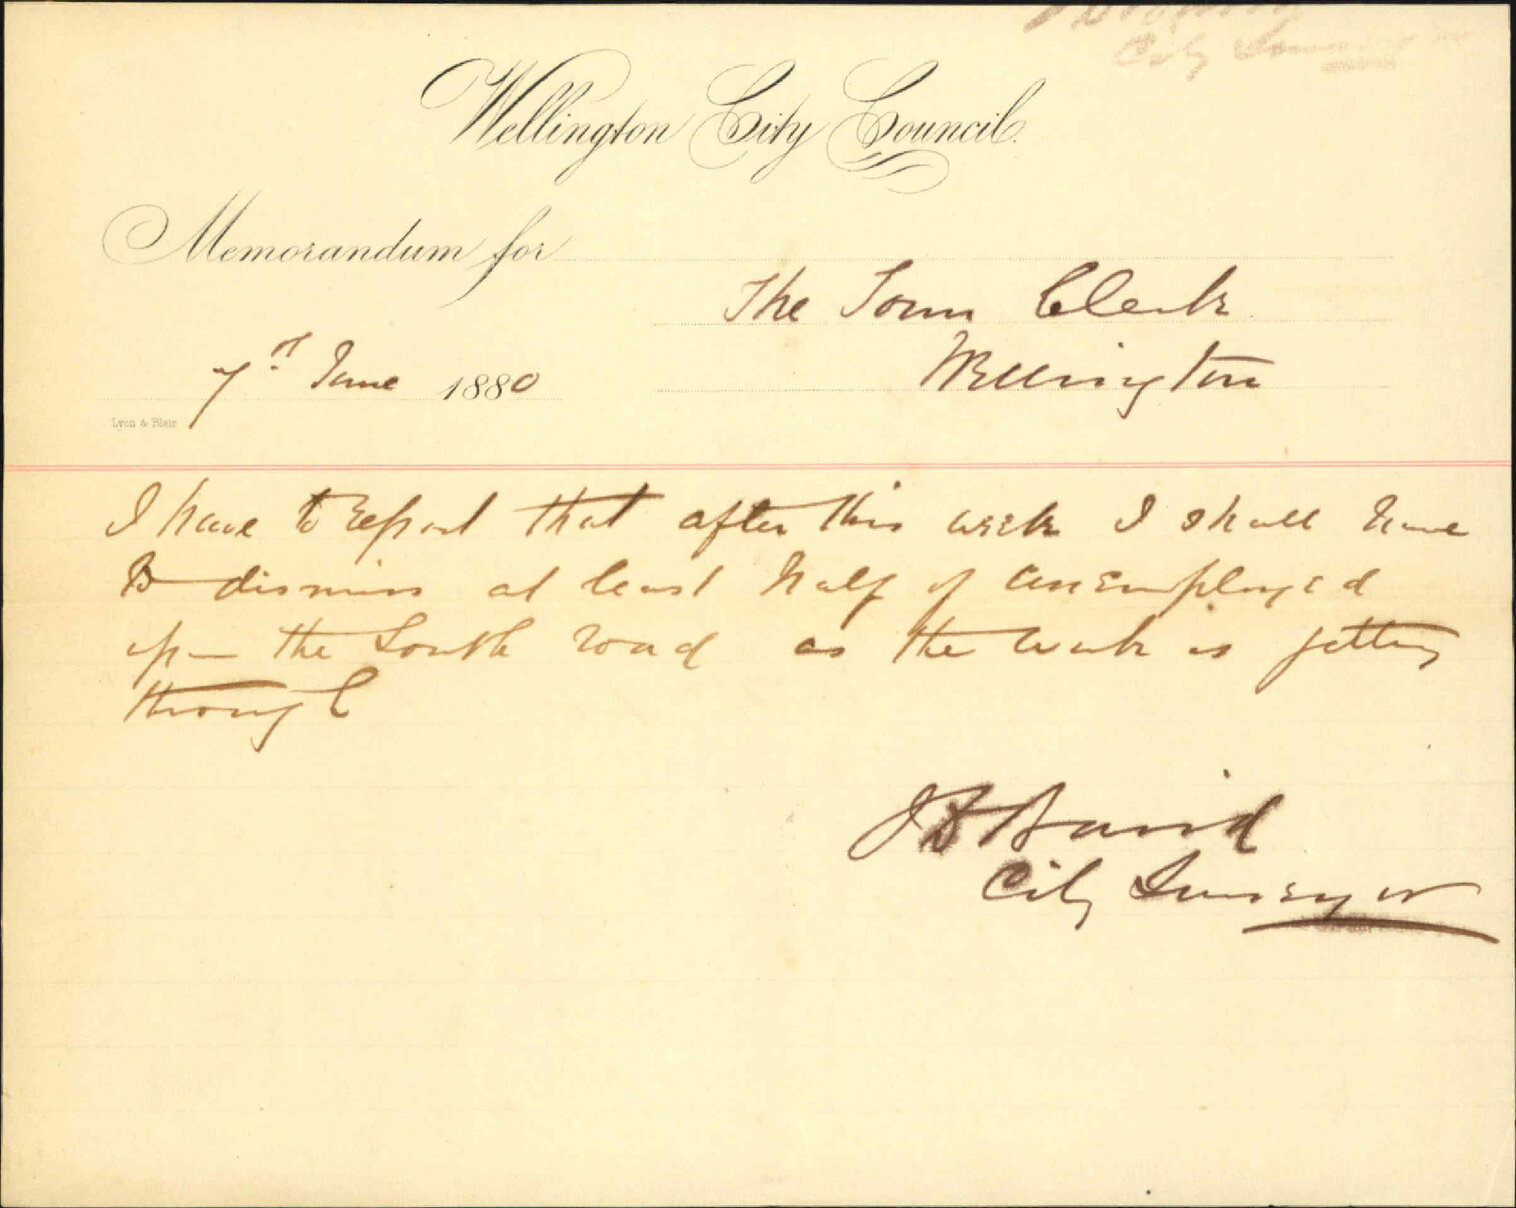 City
Wellington City Council.
Memorandum for
The Town Clerk
Wellington
7th June 1880
Lyon & Blair
I have to report that after this week I shall have
to dismiss at least half of unemployed
upon the South road as the work is getting
through
J D Baird
City Surveyor